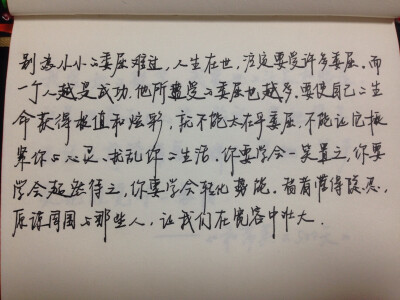 别为小小的委屈难过，人生在世，注定要受许多委屈。而
一个人越是成功，他所遭受的委屈也越多。要使自己的生
命获得极值和炫彩，就不能太在乎委屈，不能让它揪
紧你的心灵、扰乱你的生活。你要学会一笑置之，你要
学会超然待之，你要学会转化势能。智者懂得隐忍，
原谅周围的那些人，让我们在宽容中壮大。